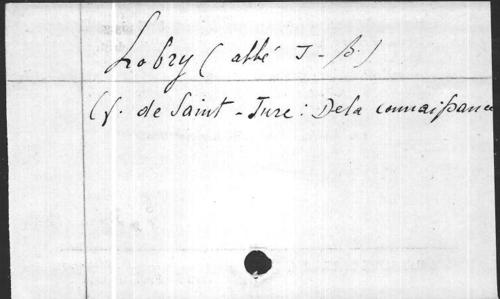 Lobry (abbé J-B.)
Cf. de Saint-Jure: De la connaissance